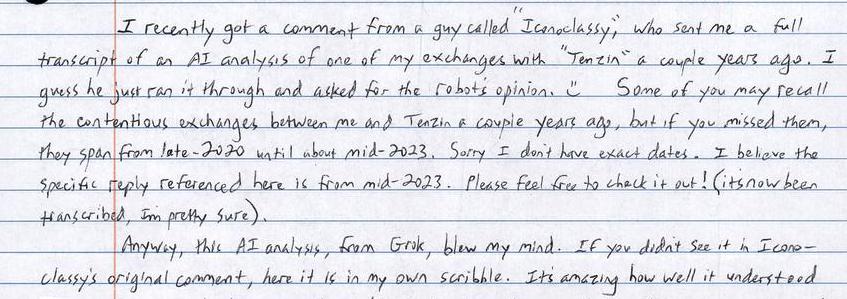 I recently got a comment from a guy called "Iconoclassy," who sent me a full
transcript of an AI analysis of one of my exchanges with "Tenzin" a couple years ago. I
guess he just ran it through and asked for the robot's opinion. Ü Some of you may recall
the contentious exchanges between me and Tenzin a couple years ago, but if you missed them,
they span from late-2020 until about mid-2023. Sorry I don't have exact dates. I believe the
specific reply referenced here is from mid-2023. Please feel free to check it out! (its now been
transcribed, Im pretty sure).
Anyway, this AI analysis, from Grok, blew my mind. If you didn't see it in Icono-
classy's original comment, here it is in my own scribble. Its amazing how well it understood